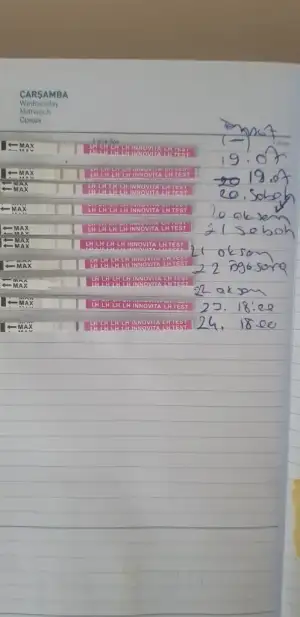 ÇARŞAMBA
Wednesday
Mittwoch
MAX
LH LH LH LH INNOVITA LH TEST
(-)
19.07
MAX
LH LH LH LH INNOVITA LH TEST
19.07
MAX
LH LH LH LH INNOVITA LH TEST
20. Sabah
MAX
LH LH LH LH INNOVITA LH TEST
20 akşam
MAX
LH LH LH LH INNOVITA LH TEST
21 Sabah
MAX
LH LH LH LH INNOVITA LH TEST
21 akşam
MAX
LH LH LH LH INNOVITA LH TEST
22
MAX
LH LH LH LH INNOVITA LH TEST
22 akşam
MAX
LH LH LH LH INNOVITA LH TEST
23. 18:00
MAX
LH LH LH LH INNOVITA LH TEST
24. 18.00